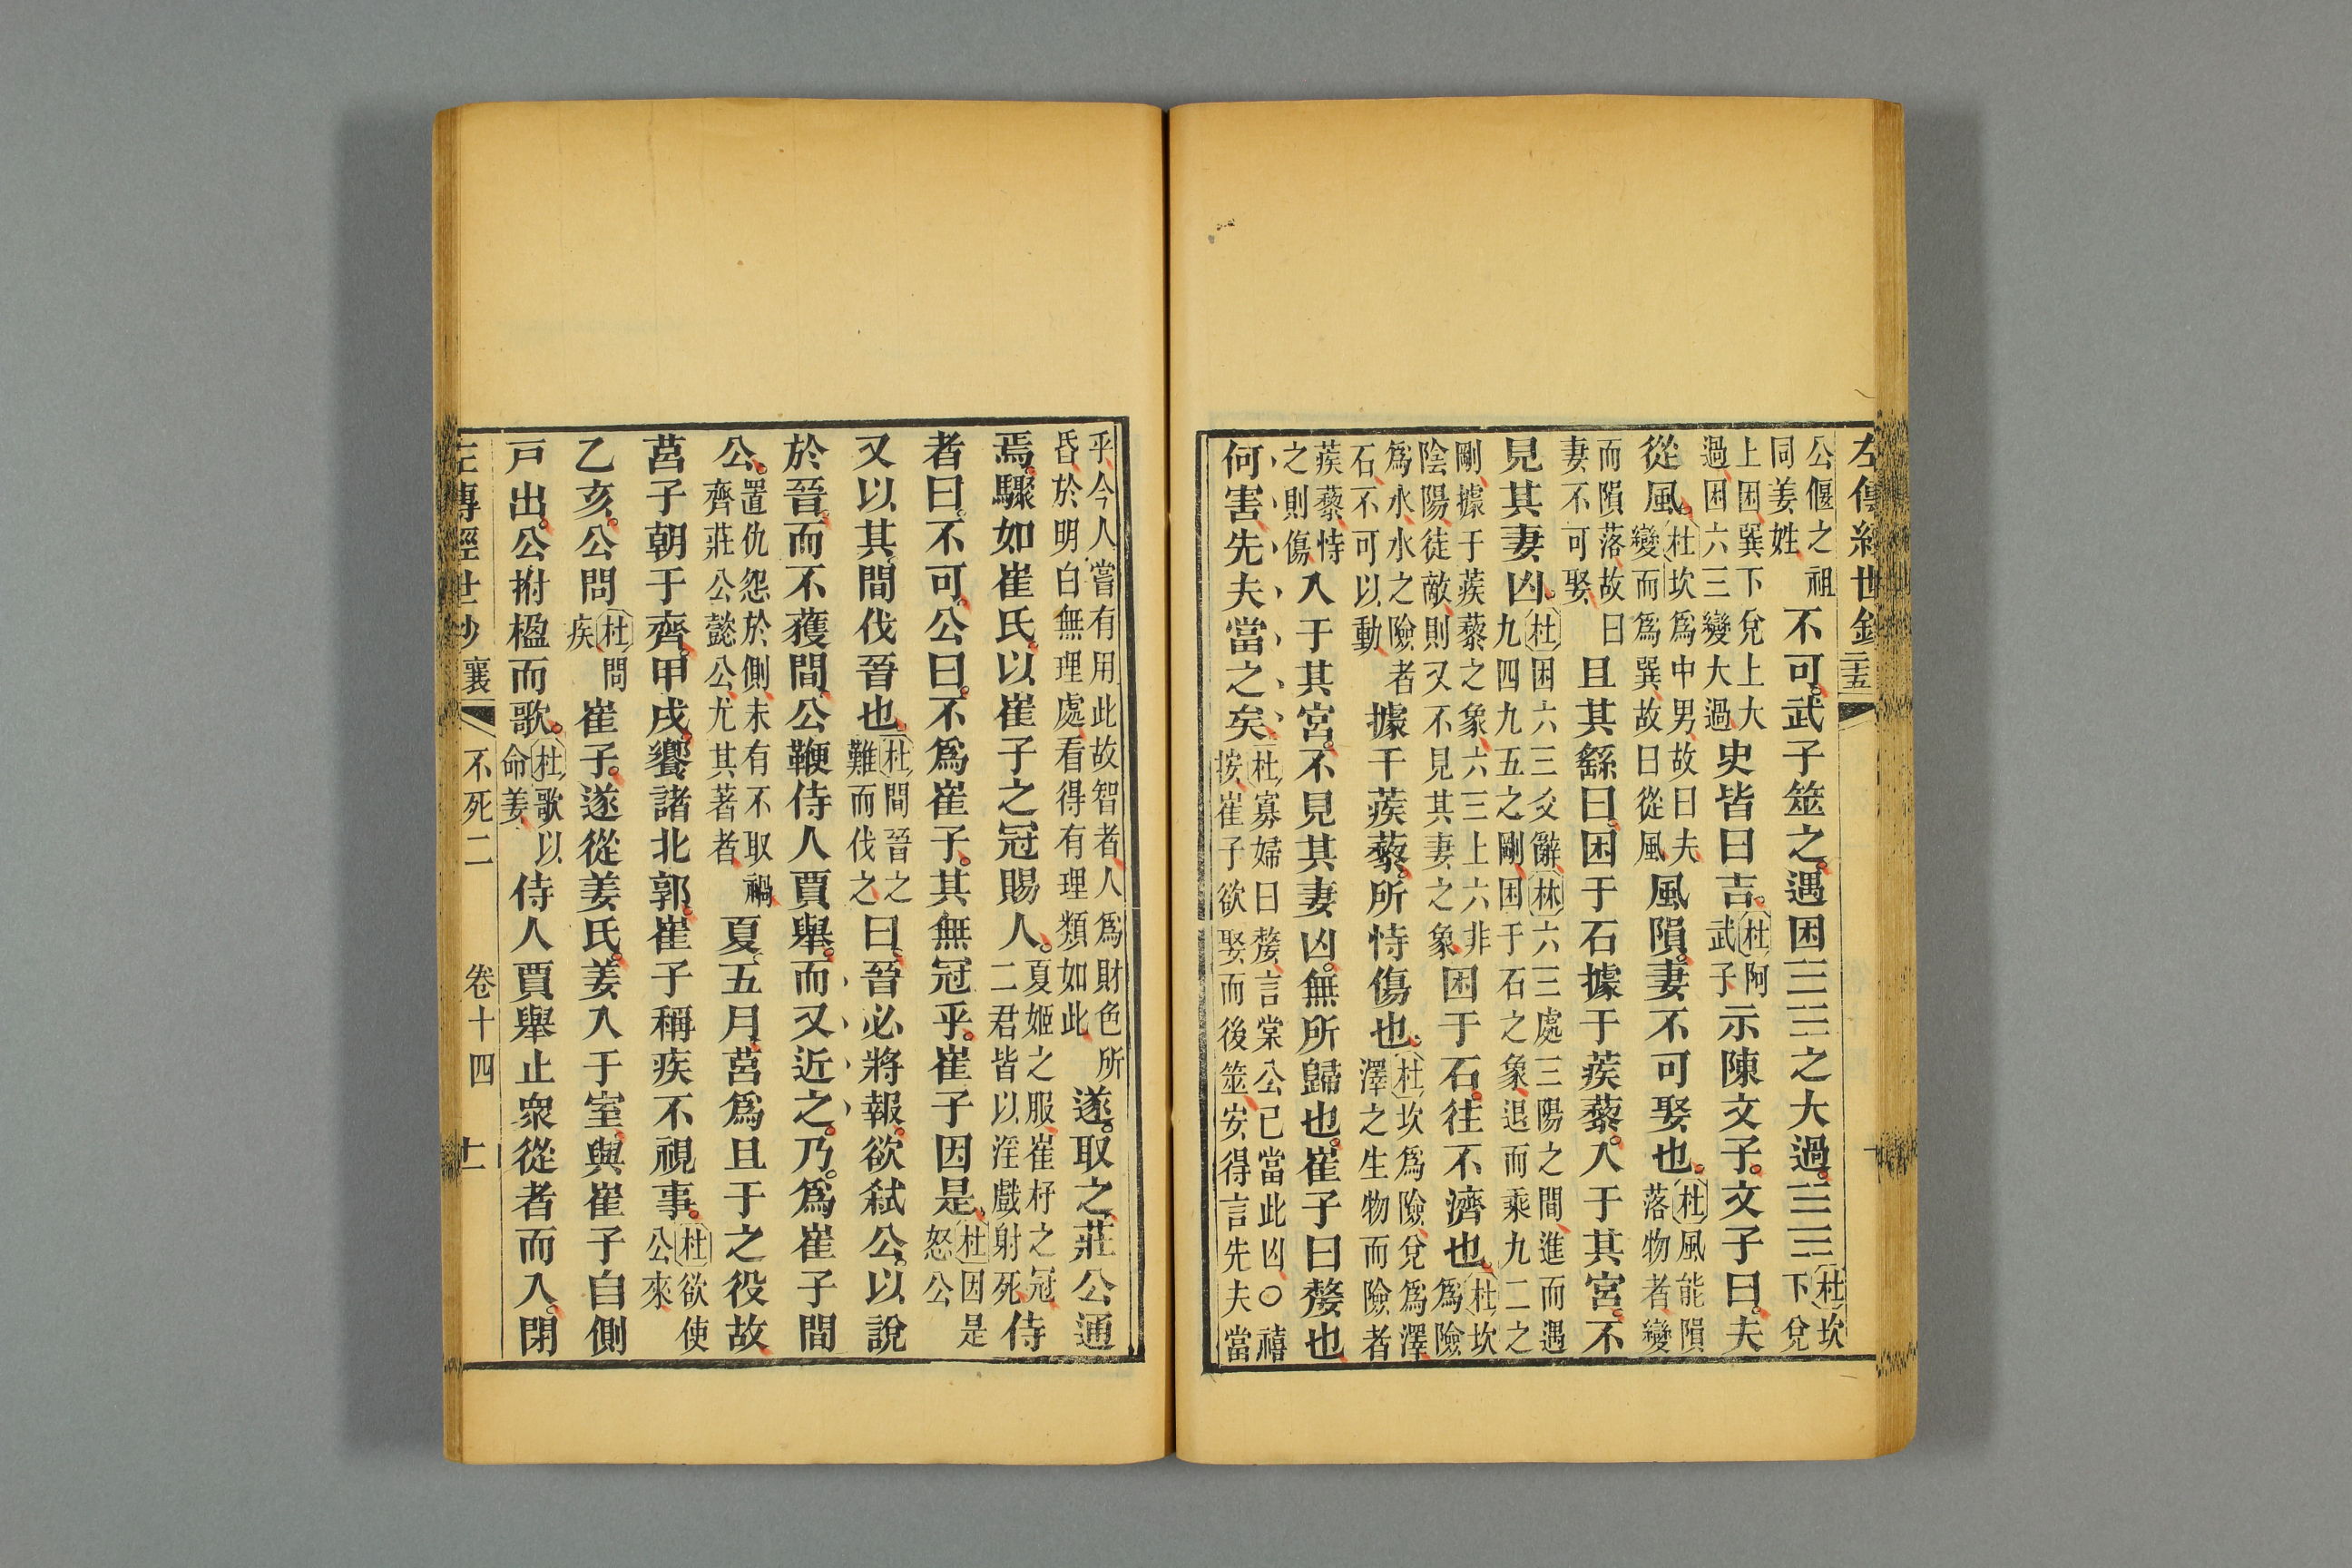 左傳經世鈔 二十五
公偃之祖同姜姓不可。武子筮之。遇困☱☵之大過。☱☴杜坎下兌
上困巽下兌上大過困六三變大過史皆曰吉。杜阿武子示陳文子。文子曰。夫
從風。杜坎爲中男故曰夫變而爲巽故曰從風風隕。妻不可娶也。杜風能隕落物者變
而隕落故曰妻不可娶且其繇曰。困于石據于蒺藜。入于其宮。不
見其妻凶。杜困六三爻辭林六三處三陽之間進而遇九四九五之剛困于石之象退而乘九二之
剛據于蒺藜之象六三上六非陰陽徒敵則又不見其妻之象困于石。往不濟也。杜坎爲險
爲水水之險者石不可以動據于蒺藜。所恃傷也。杜坎爲險兌爲澤澤之生物而險者
蒺藜恃之則傷入于其宮。不見其妻凶。無所歸也。崔子曰嫠也
何害先夫當之矣杜寡婦曰嫠言棠公已當此凶○禧按崔子欲娶而後筮安得言先夫當
乎今人嘗有用此故智者人爲財色所昏於明白無理處看得有理類如此遂取之。莊公通
焉。驟如崔氏。以崔子之冠賜人。夏姬之服崔杼之冠二君皆以淫戲射死侍
者曰。不可。公曰。不爲崔子。其無冠乎。崔子因是。杜因是怒公
又以其間伐晉也。杜間晉之難而伐之曰。晉必將報。欲弒公。以說
於晉。而不獲間。公鞭侍人賈舉。而又近之。乃爲崔子間
公。置仇怨於側未有不取禍齊莊公懿公尤其著者夏五月。莒爲且于之役故
莒子朝于齊。甲戌。饗諸北郭。崔子稱疾不視事。杜欲使公來
乙亥。公問杜問疾崔子。遂從姜氏。姜入于室。與崔子自側
戸出。公拊楹而歌。杜歌以命姜侍人賈舉止衆從者而入。閉
左傳經世鈔 襄 不死二 卷十四 十一